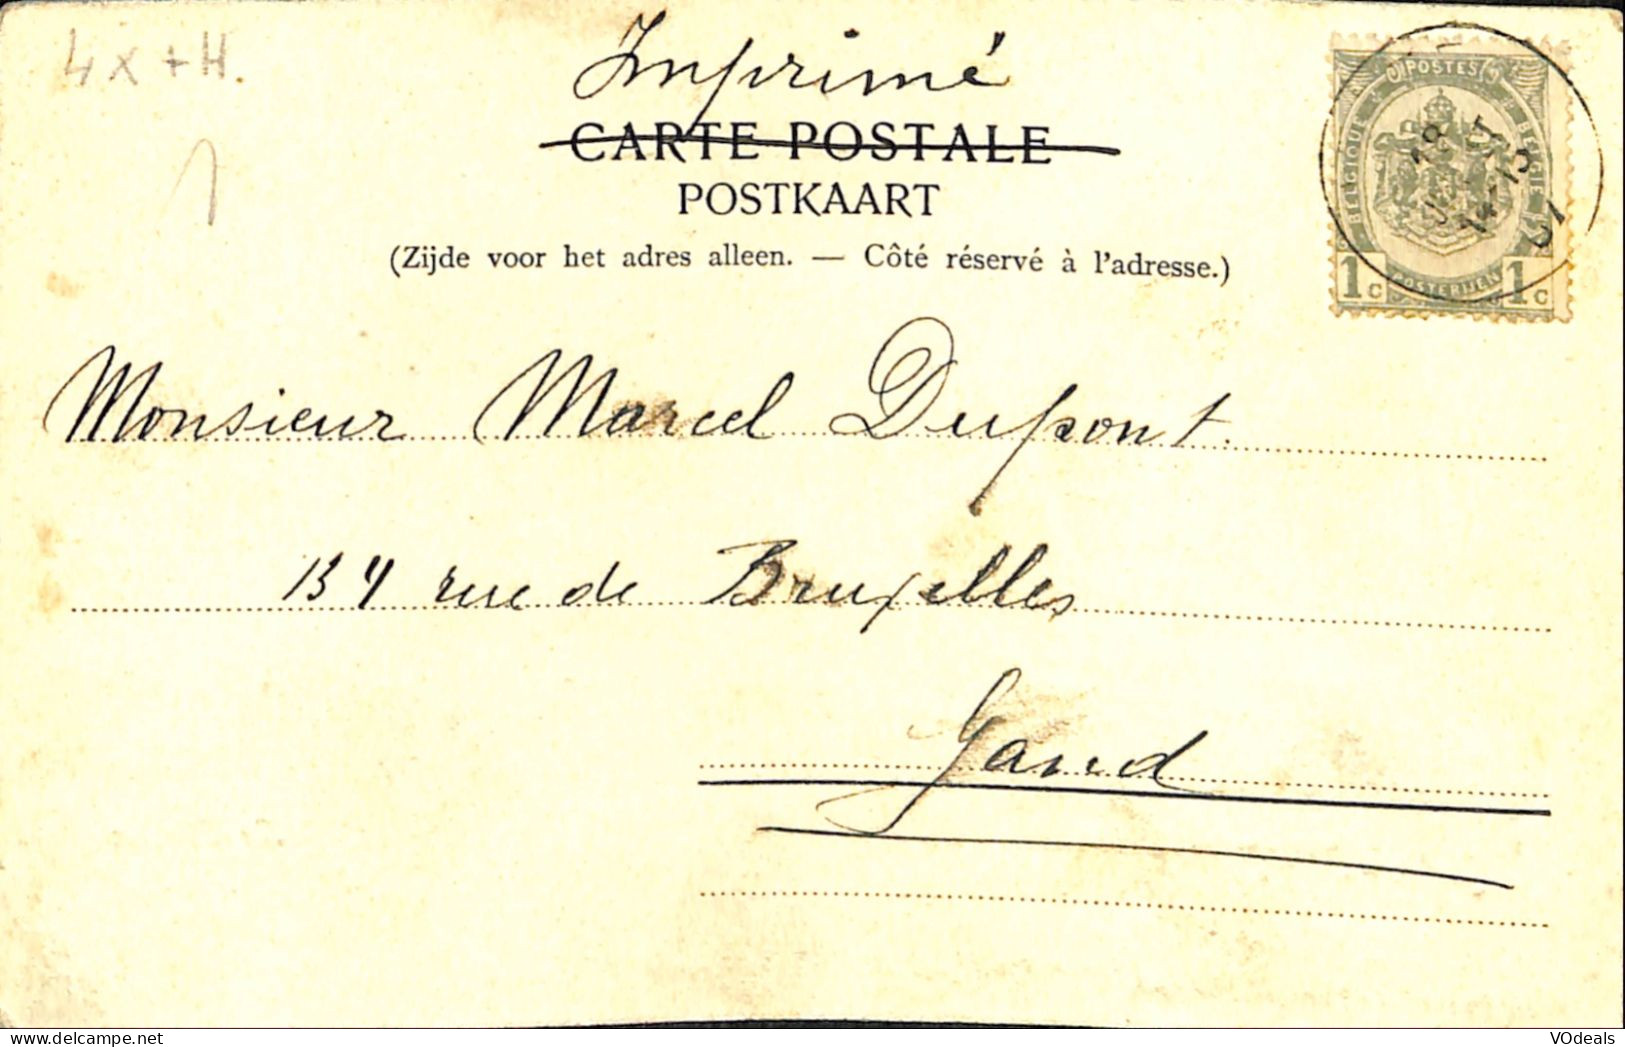 4 x + H.
1
Imprimé
CARTE POSTALE
POSTKAART
(Zijde voor het adres alleen. — Côté réservé à l'adresse.)
POSTES
BELGIQUE
BELGIE
POSTERIJEN
1 C
1 C
18
14-15
07
Monsieur Marcel Dupont.
134 rue de Bruxelles
Gand
VOdeals